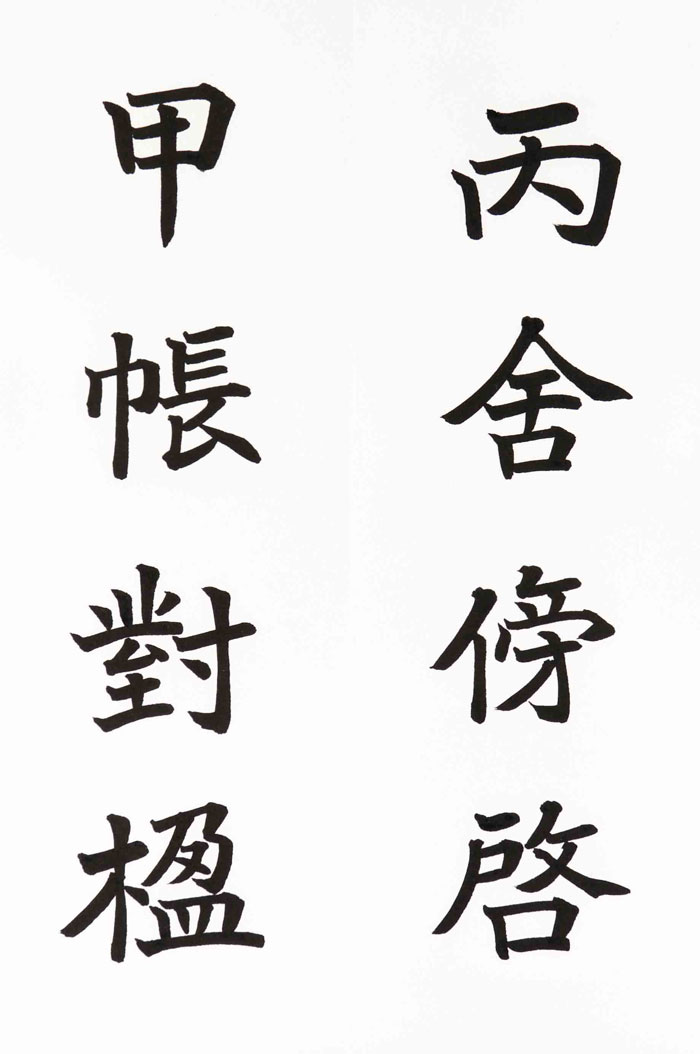 丙舍傍啓
甲帳對楹